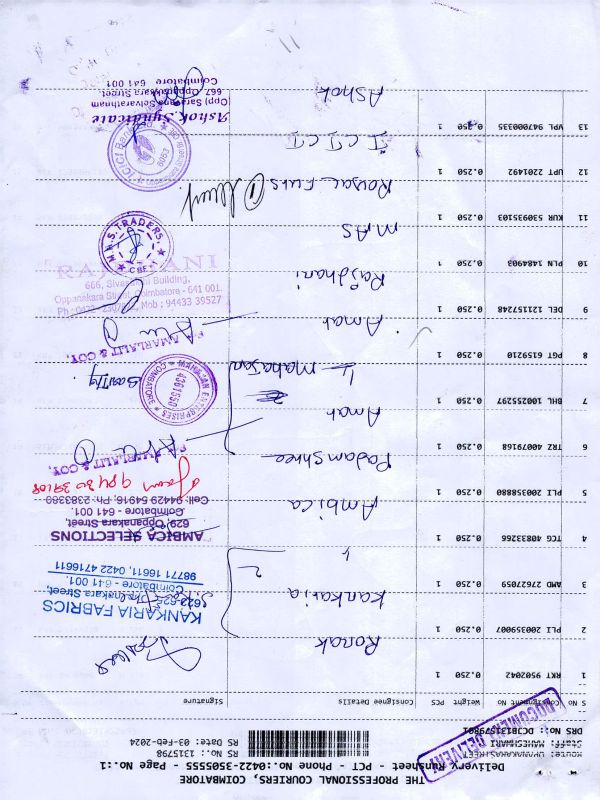 THE PROFESSIONAL COURIERS, COIMBATORE
Delivery Runsheet - PCT - Phone No.:0422-3505555 Page No.:1
Route: OPPANAKARASTREET
Staff: MAHESHMARI
RS No.: 1315798
RS Date: 03-Feb-2024
DRS No.: PCJB131579801
DOCUMENT DELIVERY
S No Consignment No Weight PCS Consignee Details Signature
1 RKT 9502042 0.250 1 Ronak
2 PLI 200359007 0.250 1 Kankaria
KANKARIA FABRICS
Coimbatore - 641 001.
98771 16611, 0422 4716611
3 AMD 27627059 0.250 1 "
4 TCG 40833266 0.250 1 Ambica
AMBICA SELECTIONS
629, Oppanakara Street,
Coimbatore - 641 001.
Cell: 94429 54916, Ph: 2383389
5 PLI 200358880 0.250 1 Padamshree
6 TRZ 40079168 0.250 1 Amar
AMARLALIT & COY,
7 BHL 100255297 0.250 1 Mahajan
MAHAJAN ENTERPRISES
4361550
COIMBATORE
8 PGT 6159210 0.250 1 Amar
AMARLALIT & COY,
9 DEL 121157248 0.250 1 Rajdhani
RAJDHANI
666, Sivasami Building,
Oppanakara Street, Coimbatore - 641 001.
Mob : 94433 39527
10 PLN 1484903 0.250 1 MAS
M.A.S. TRADERS
CBE-1
11 KUR 530935103 0.250 1
12 UPT 2201492 0.250 1 ICICI
ICICI Bank
13 VPL 947000335 0.250 1 Ashok
Ashok Syndicate
667, Oppanakkara Street
Coimbatore 641 001
11